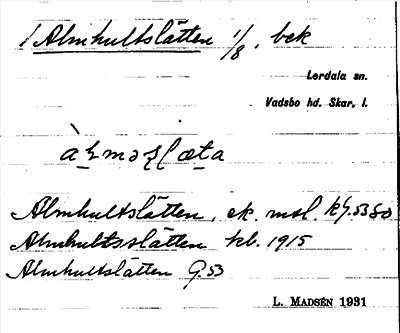 Almhultslätten 1/8. bek
Lerdala sn.
Vadsbo hd. Skar. l.
Älmhultslätten, ek. msl.
Älmhultsslätten kb. 1915
Älmhultslätten G. 53
L. MADSÉN 1931